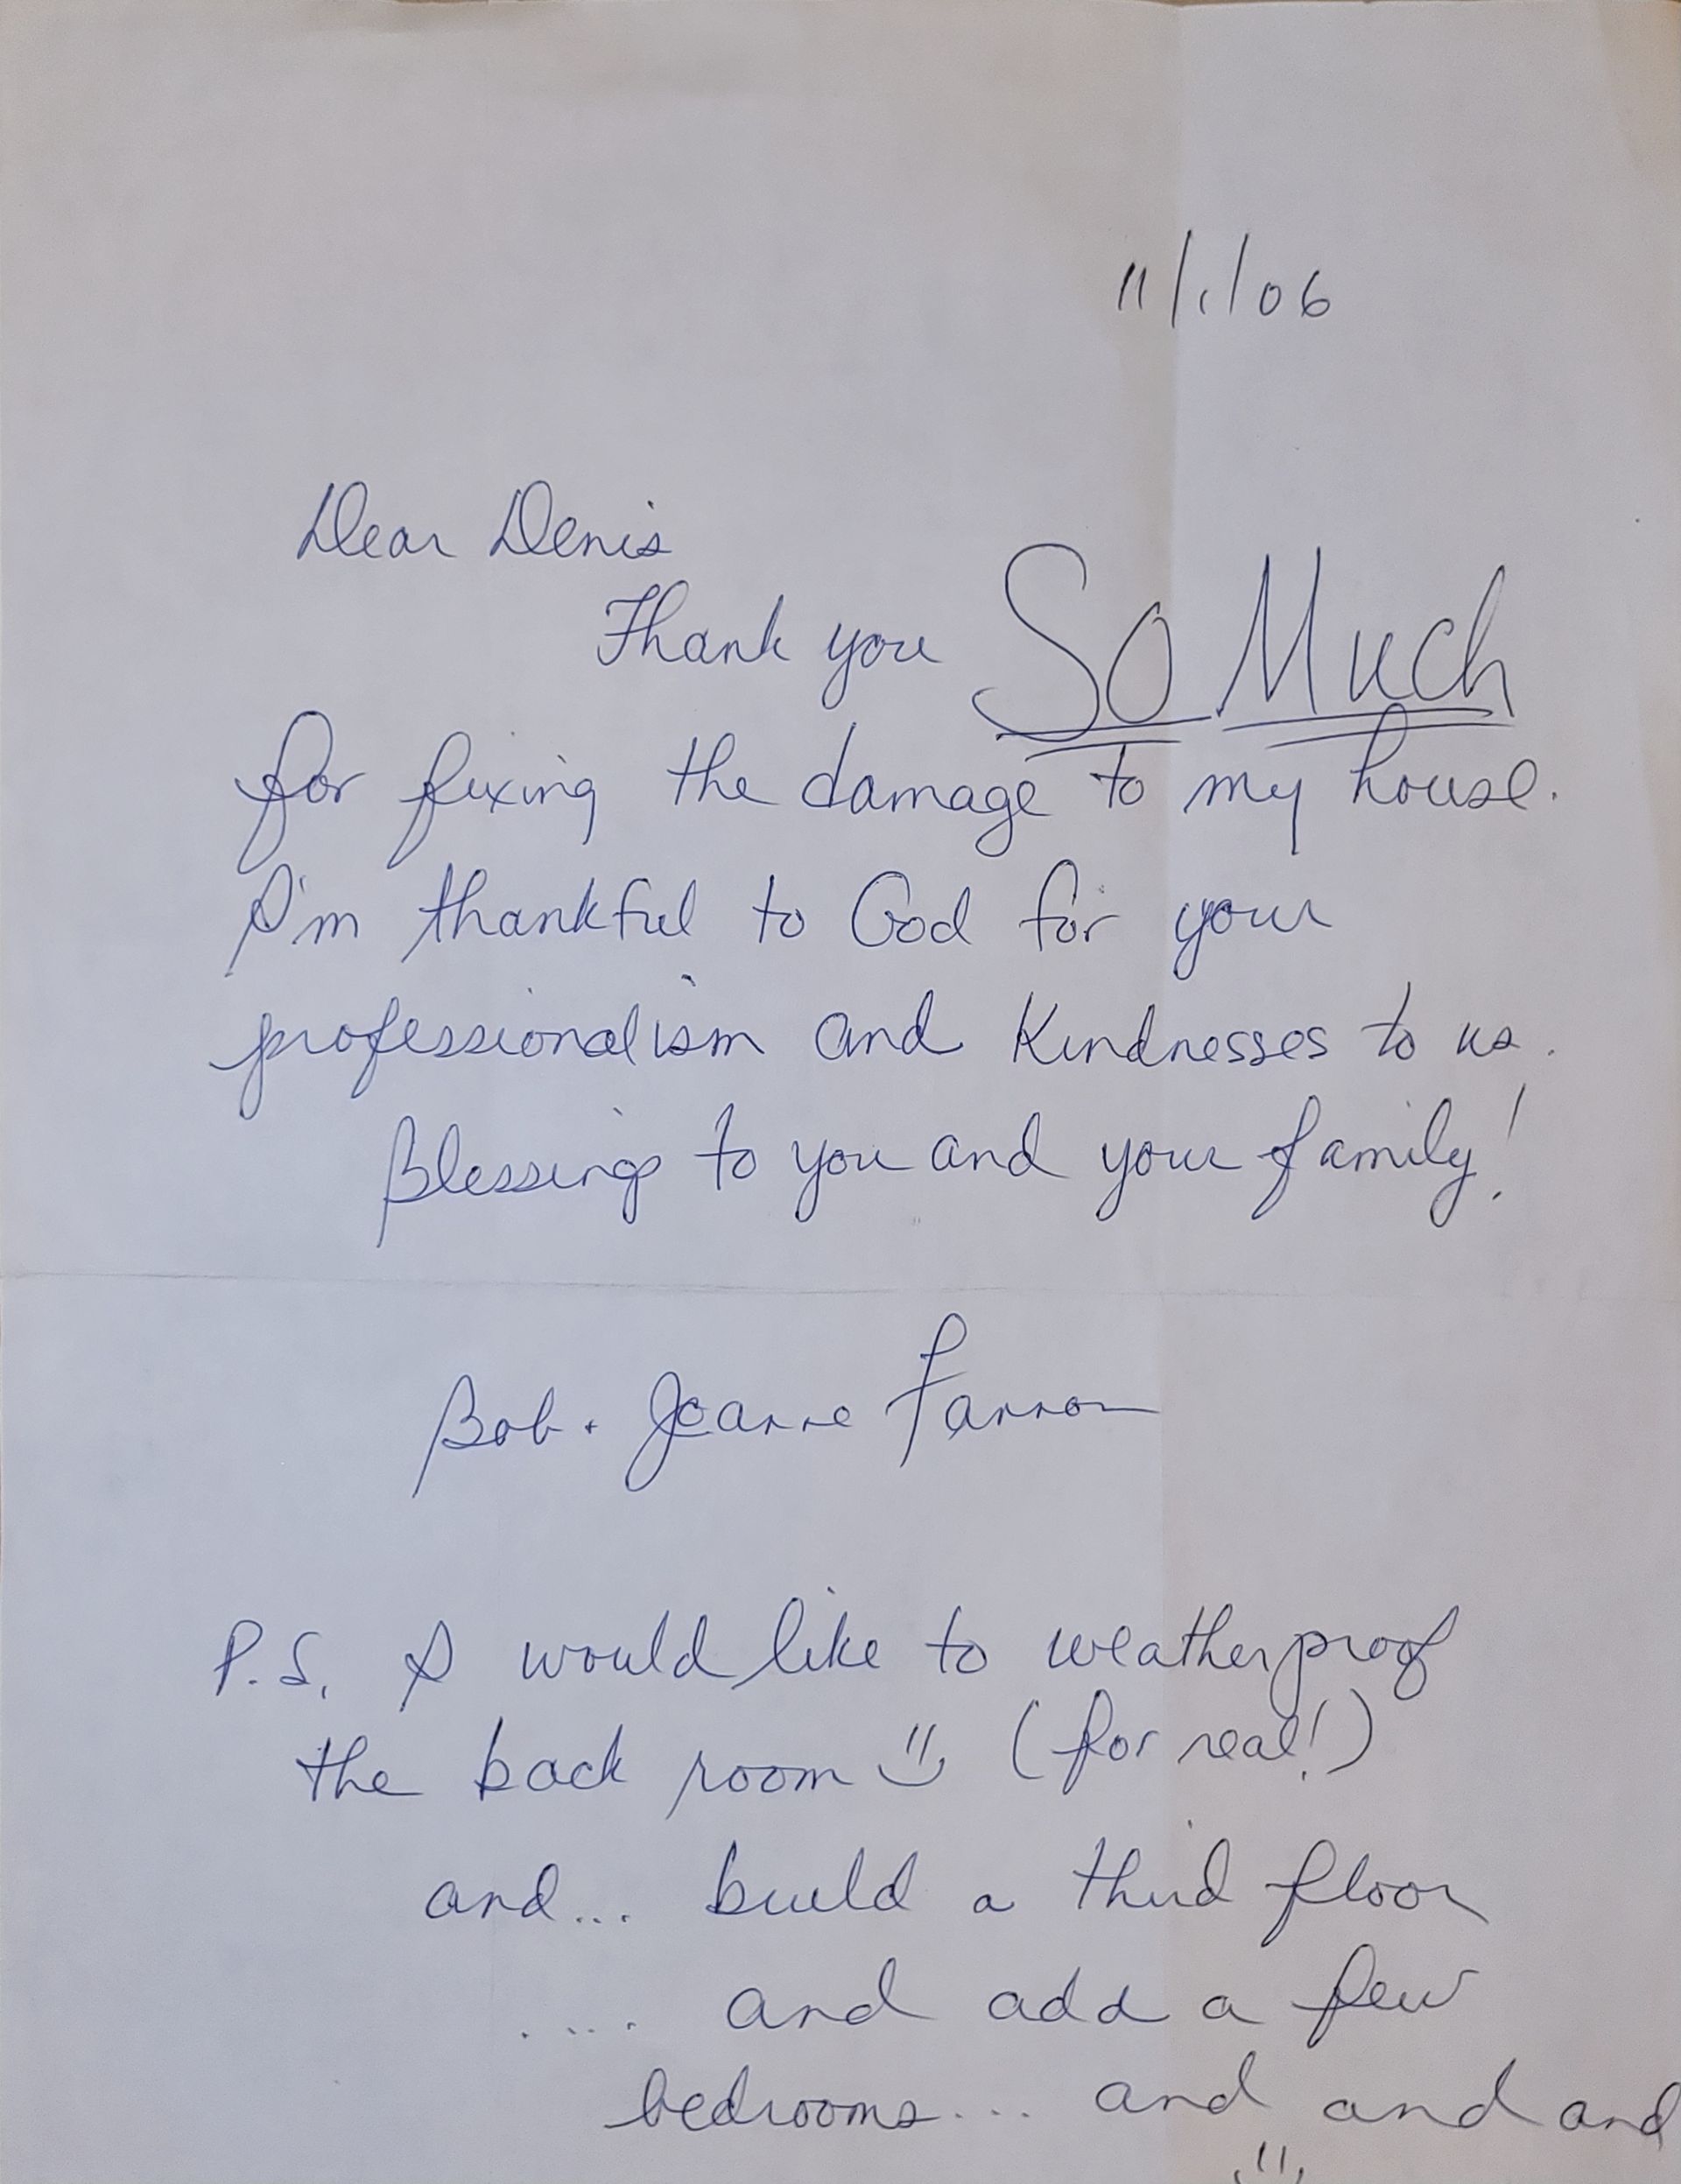 11/1/06
Dear Denis
Thank you So Much
for fixing the damage to my house.
I'm thankful to God for your
professionalism and Kindnesses to us.
Blessings to you and your family!
Bob + Jeanne
P.S. I would like to weatherproof
the back room (for real!)
and... build a third floor
.... and add a few
bedrooms... and and and